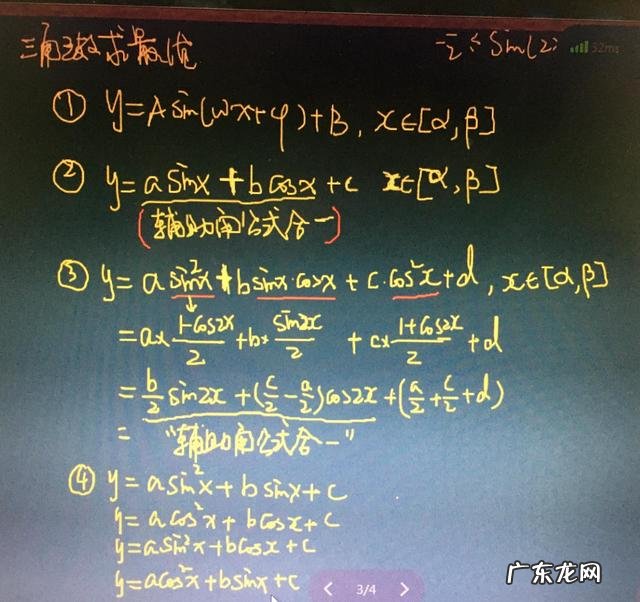 三角函数求最值
-½ ≤ sin(2x
32ms
① y=Asin(ωx+φ)+B, x∈[α,β]
② y=asinx+bcosx+c x∈[α,β]
(辅助角公式合一)
③ y=asin²x+bsinx·cosx+c·cos²x+d, x∈[α,β]
=a×(1-cos2x)/2+b×sin2x/2+c×(1+cos2x)/2+d
=b/2 sin2x+(c/2-a/2)cos2x+(a/2+c/2+d)
="辅助角公式合一"
④ y=asin²x+bsinx+c
y=acos²x+bcosx+c
y=asin²x+bcosx+c
y=acos²x+bsinx+c
3/4
广东龙网